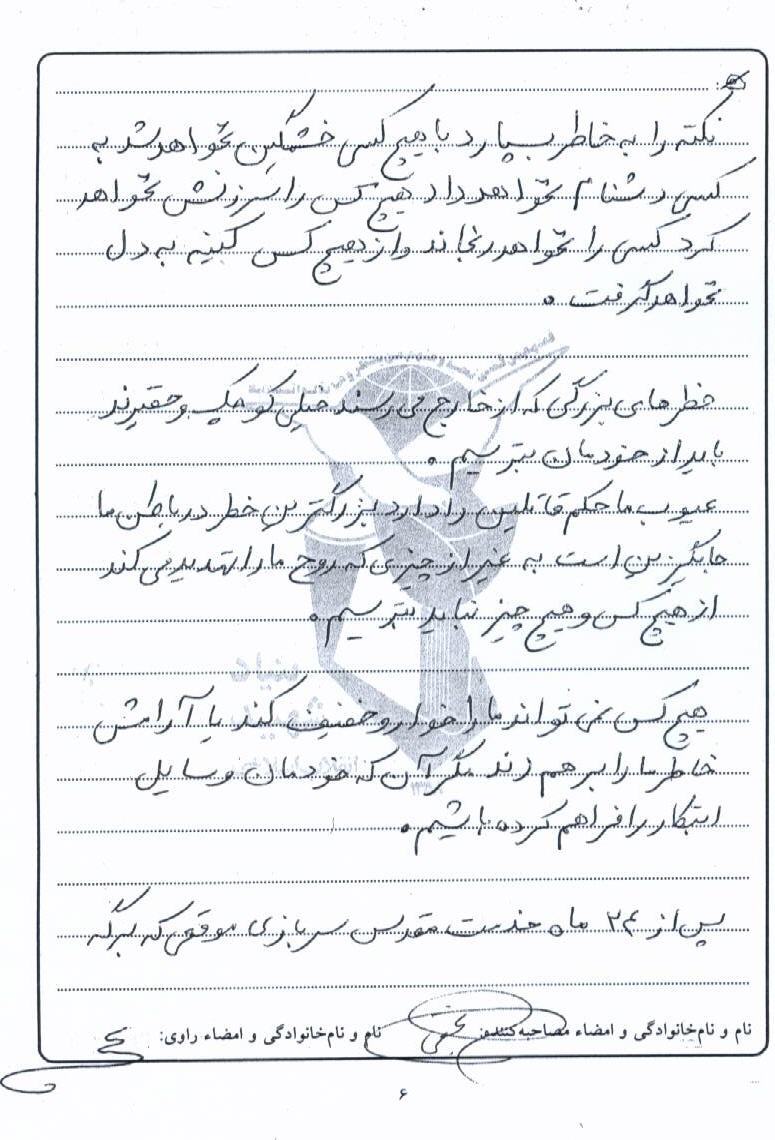 نکته را به خاطر بسپارد با هیچ کسی خشمگین نخواهد شد به
کسی دشنام نخواهد داد هیچ کس را سرزنش نخواهد
کرد کسی را نخواهد رنجاند و از هیچ کس کینه به دل
نخواهد گرفت .
خطرهای بزرگی که از خارج می رسند خیلی کوچک و حقیرند
باید از خودمان بترسیم .
عیوب ما حکم قاتلین را دارد بزرگترین خطر در باطن ما
جایگزین است به غیر از چیزی که روح ما را تهدید می کند
از هیچ کس و هیچ چیز نباید بترسیم .
هیچ کس نمی تواند ما را خوار و خفیف کند یا آرامش
خاطر ما را بر هم زند مگر آن که خودمان وسایل
ابتکار را فراهم کرده باشیم .
پس از ۲۴ ماه خدمت مقدس سربازی موقعی که برگه
نام و نام خانوادگی و امضاء مصاحبه کننده:
نام و نام خانوادگی و امضاء راوی:
۶